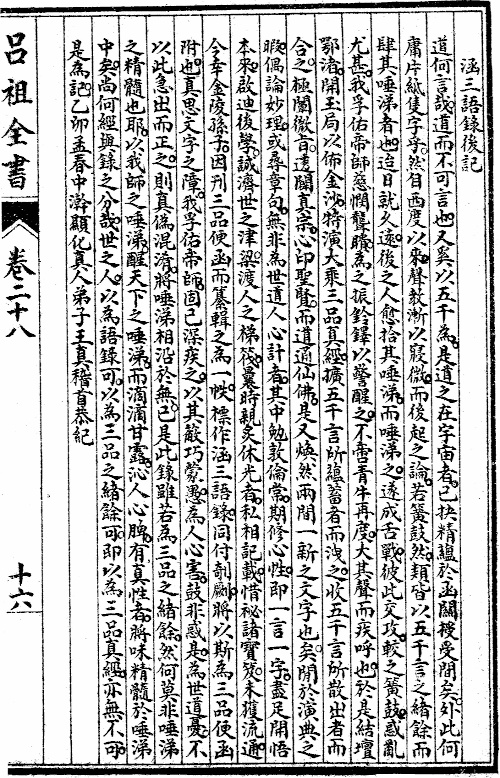 涵三語錄後記
道何言哉道而不可言也又奚以五千為是道之在宇宙者已抉精蘊於函關授受間矣外此何
庸片紙隻字乎然自西度以來聲教漸以寢微而後起之論若簧鼓然類皆以五千言之緒餘而
肆其唾涕者也迨日就久遠後之人愈拾其唾涕而唾涕之遂成舌戰彼此交攻較之簧鼓惑亂
尤甚我孚佑帝師慈憫聾聵為之振鈴鐸以警醒之不啻青牛再度大其聲而疾呼也於是結壇
鄂渚開玉局以佈金沙特演大乘三品真經擴五千言所蘊蓄者而洩之收五千言所散出者而
合之極闡微旨遠闢真宗心印聖賢而道通仙佛是又煥然兩間一新之文字也矣閒於演典之
暇偶論妙理或尋章句無非為世道人心計者其中勉敦倫常期修心性即一言一字盡足開悟
本來啟迪後學誠濟世之津梁渡人之梯筏曩時親炙休光者私相記載惜秘諸寶笈未獲流通
今幸金陵孫子因刊三品便函而纂輯之為一帙標作涵三語錄同付剞劂將以斯為三品便函
附也真思文字之障我孚佑帝師固已深疾之以其簸巧蒙愚為人心害鼓非惑是為世道憂不
以此急出而正之則真偽混淆將唾涕相沿於無已是此錄雖若為三品之緒餘然何莫非唾涕
之精髓也耶以我師之唾涕醒天下之唾涕而滴滴甘露沁人心脾有真性者將味精髓於唾涕
中矣尚何經與錄之分哉世之人以為語錄可以為三品之緒餘可即以為三品真經亦無不可
是為記乙卯孟春中澣顯化真人弟子王真稽首恭紀
呂祖全書 卷二十八 十六